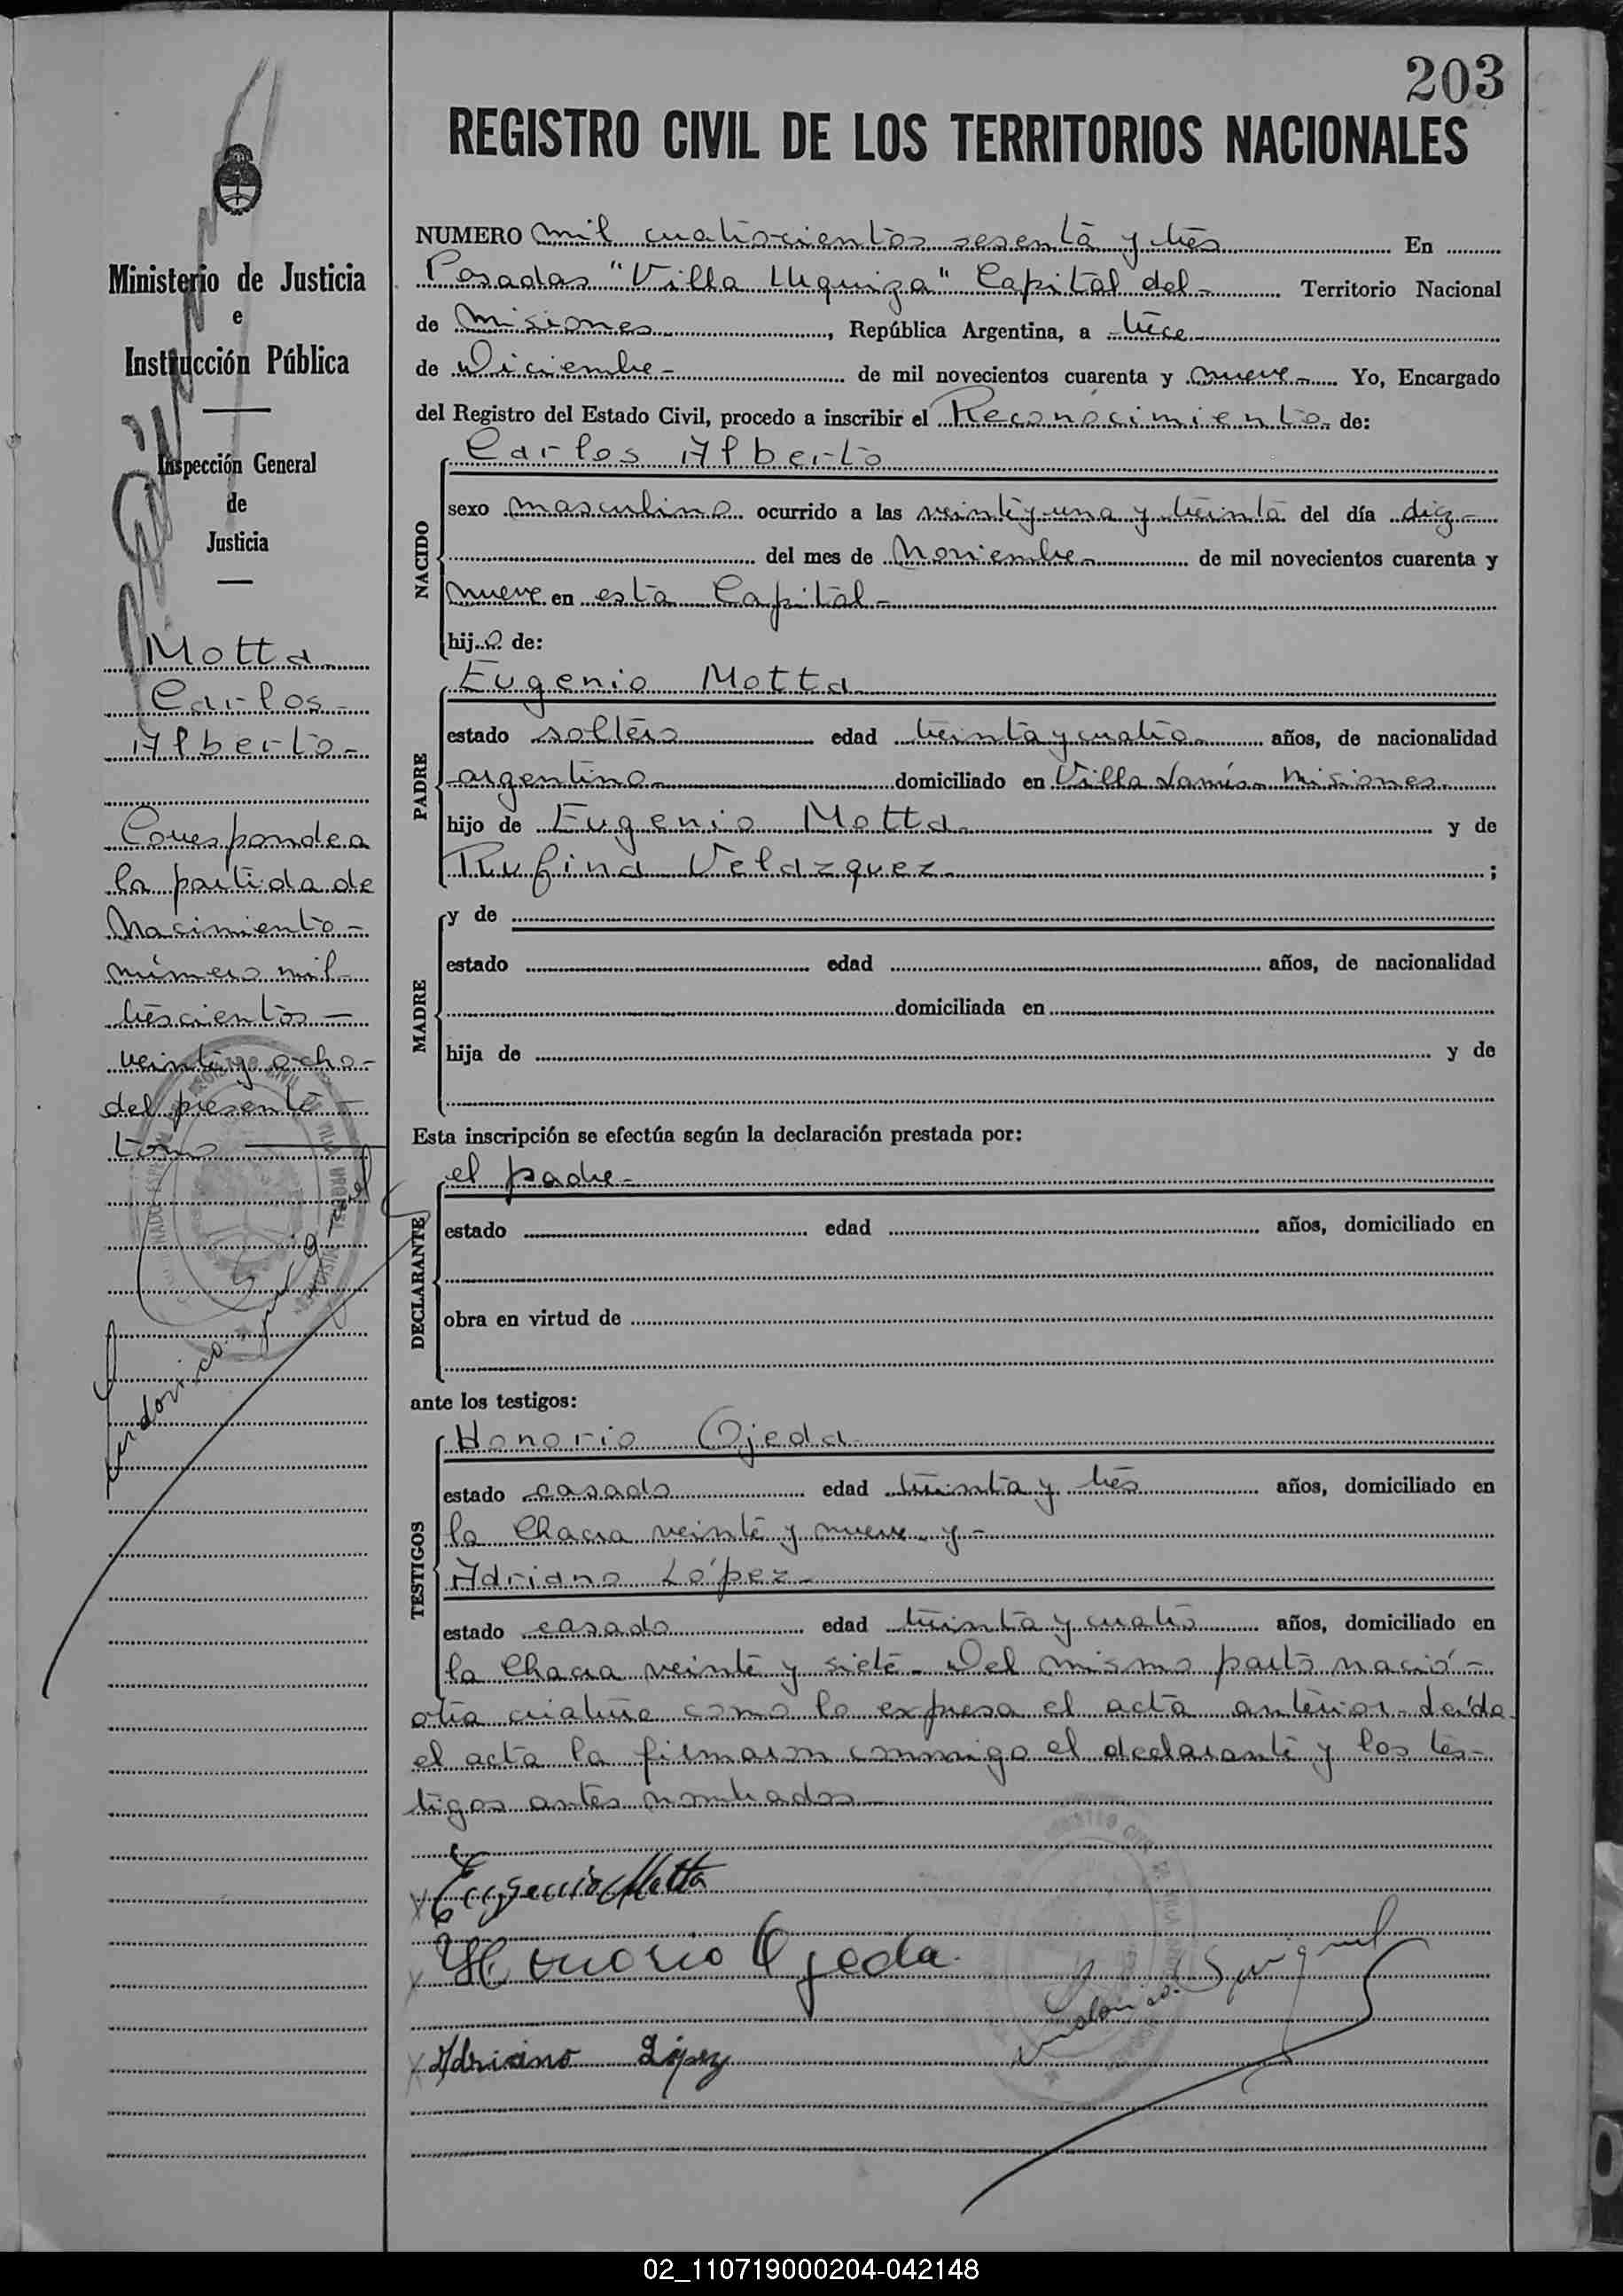 203
REGISTRO CIVIL DE LOS TERRITORIOS NACIONALES
Ministerio de Justicia
e
Instrucción Pública
Inspección General
de
Justicia
Motta
Carlos
Alberto-
Corresponde a
la partida de
Nacimiento-
número mil
trescientos-
veinte y ocho-
del presente-
tomo
NUMERO mil cuatrocientos sesenta y tres En
Posadas "Villa Urquiza" Capital del- Territorio Nacional
de Misiones, República Argentina, a trece
de Diciembre- de mil novecientos cuarenta y nueve- Yo, Encargado
del Registro del Estado Civil, procedo a inscribir el Reconocimiento de:
Carlos Alberto
NACIDO
sexo masculino ocurrido a las veinte y una y treinta del día diez-
del mes de Noviembre- de mil novecientos cuarenta y
nueve en esta Capital-
hijo de:
PADRE
Eugenio Motta
estado soltero edad treinta y cuatro años, de nacionalidad
argentino domiciliado en Villa Misiones
hijo de Eugenio Motta y de
Rufina Velazquez ;
MADRE
y de
estado edad años, de nacionalidad
domiciliada en
hija de y de
Esta inscripción se efectúa según la declaración prestada por:
el padre-
DECLARANTE
estado edad años, domiciliado en
obra en virtud de
ante los testigos:
TESTIGOS
Honorio Ojeda
estado casado edad treinta y tres años, domiciliado en
la Chacra veinte y nueve y-
Adriano López-
estado casado edad treinta y cuatro años, domiciliado en
la Chacra veinte y siete- Del mismo parto nació-
otra criatura como lo expresa el acta anterior- Leída
el acta la firmaron conmigo el declarante y los tes-
tigos antes nombrados
Eugenio Motta
Honorio Ojeda
Adriano López
02_110719000204-042148